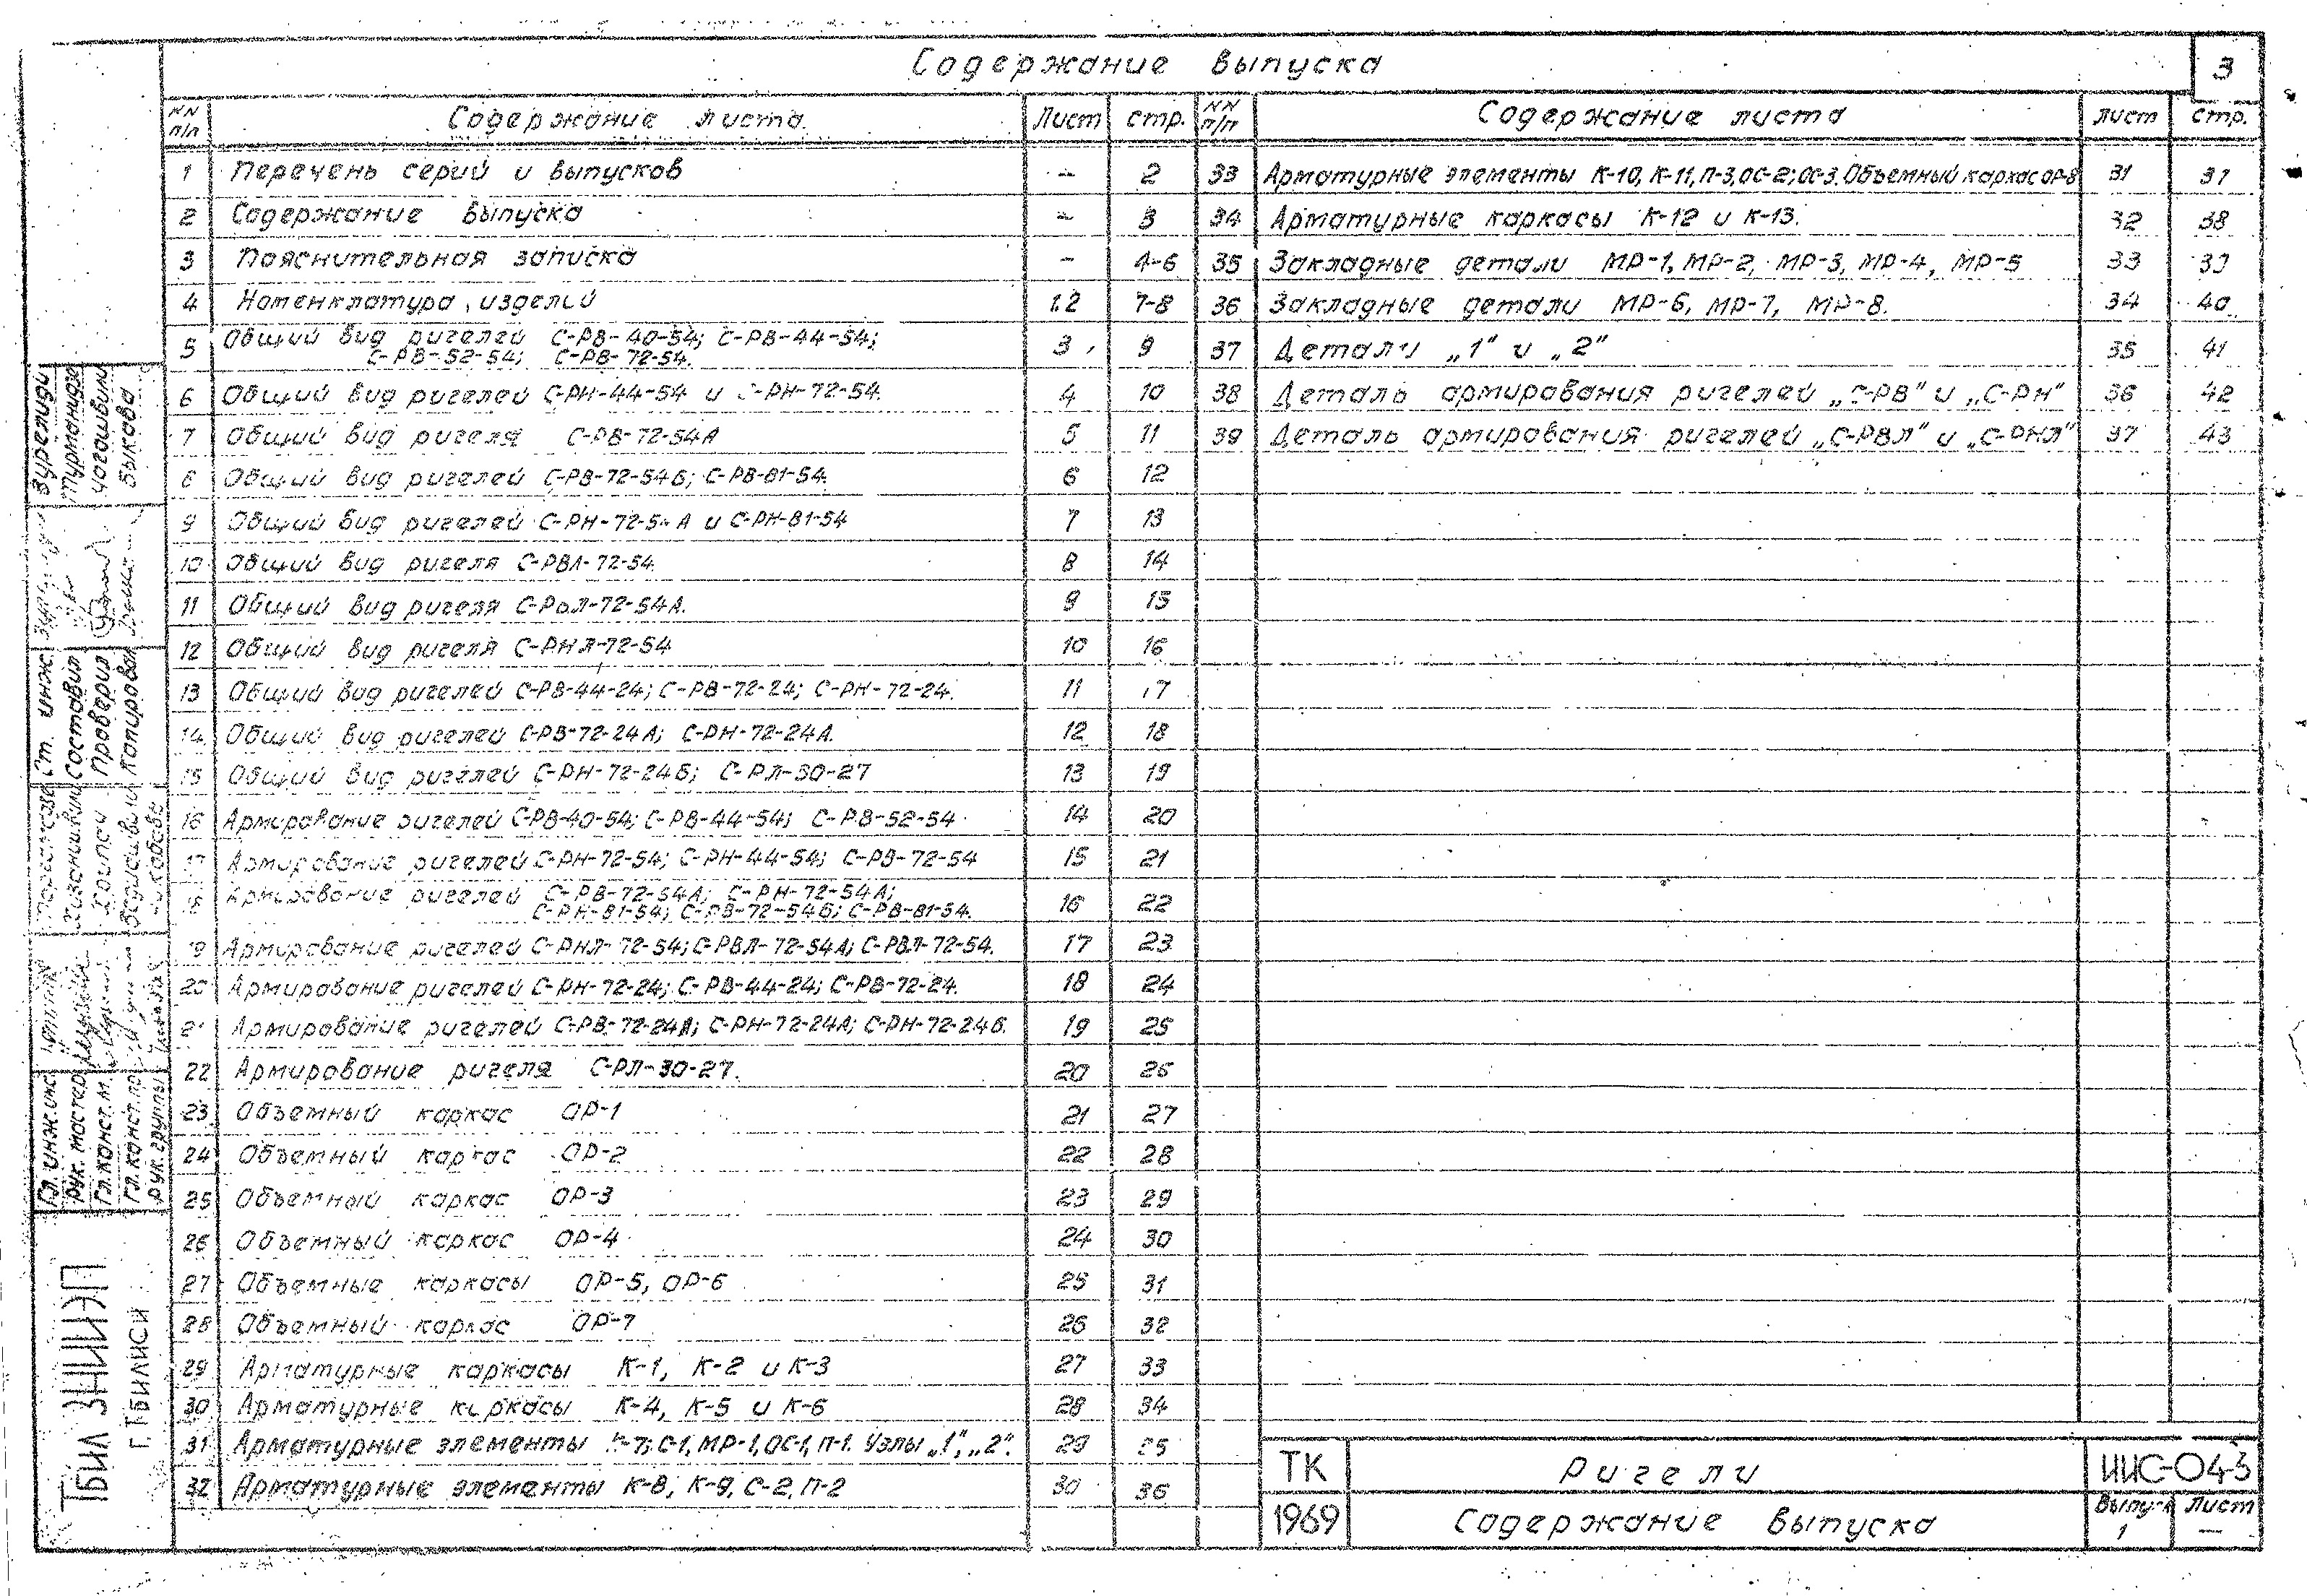 Содержание выпуска
3
NN п/п Содержание листа Лист стр.
1 Перечень серий и выпусков — 2
2 Содержание выпуска — 3
3 Пояснительная записка — 4-6
4 Номенклатура изделий 1.2 7-8
5 Общий вид ригелей С-РВ-40-54; С-РВ-44-54;
С-РВ-52-54; С-РВ-72-54. 3 9
6 Общий вид ригелей С-РН-44-54 и С-РН-72-54. 4 10
7 Общий вид ригеля С-РВ-72-54А 5 11
8 Общий вид ригелей С-РВ-72-54Б; С-РВ-81-54. 6 12
9 Общий вид ригелей С-РН-72-54А и С-РН-81-54 7 13
10 Общий вид ригеля С-РВЛ-72-54. 8 14
11 Общий вид ригеля С-РВЛ-72-54А. 9 15
12 Общий вид ригеля С-РНЛ-72-54 10 16
13 Общий вид ригелей С-РВ-44-24; С-РВ-72-24; С-РН-72-24. 11 17
14 Общий вид ригелей С-РВ-72-24А; С-РН-72-24А. 12 18
15 Общий вид ригелей С-РН-72-24Б; С-РЛ-30-27 13 19
16 Армирование ригелей С-РВ-40-54; С-РВ-44-54; С-РВ-52-54 14 20
17 Армирование ригелей С-РН-72-54; С-РН-44-54; С-РВ-72-54 15 21
18 Армирование ригелей С-РВ-72-54А; С-РН-72-54А;
С-РН-81-54; С-РВ-72-54Б; С-РВ-81-54. 16 22
19 Армирование ригелей С-РНЛ-72-54; С-РВЛ-72-54А; С-РВЛ-72-54. 17 23
20 Армирование ригелей С-РН-72-24; С-РВ-44-24; С-РВ-72-24. 18 24
21 Армирование ригелей С-РВ-72-24А; С-РН-72-24А; С-РН-72-24Б. 19 25
22 Армирование ригеля С-РЛ-30-27. 20 26
23 Объемный каркас ОР-1 21 27
24 Объемный каркас ОР-2 22 28
25 Объемный каркас ОР-3 23 29
26 Объемный каркас ОР-4 24 30
27 Объемные каркасы ОР-5, ОР-6 25 31
28 Объемный каркас ОР-7 26 32
29 Арматурные каркасы К-1, К-2 и К-3 27 33
30 Арматурные каркасы К-4, К-5 и К-6 28 34
31 Арматурные элементы К-7; С-1, МР-1, ОС-1, П-1. Узлы „1“, „2“. 29 35
32 Арматурные элементы К-8, К-9, С-2, П-2 30 36
NN п/п Содержание листа лист стр.
33 Арматурные элементы К-10, К-11, П-3, ОС-2; ОС-3. Объемный каркас ОР-8 31 37
34 Арматурные каркасы К-12 и К-13. 32 38
35 Закладные детали МР-1, МР-2, МР-3, МР-4, МР-5 33 39
36 Закладные детали МР-6, МР-7, МР-8. 34 40
37 Детали „1“ и „2“ 35 41
38 Деталь армирования ригелей „С-РВ“ и „С-РН“ 36 42
39 Деталь армирования ригелей „С-РВЛ“ и „С-РНЛ“ 37 43
ТК Ригели ИИС-04-3
1969 Содержание выпуска Выпуск 1 Лист —
Ст. инж.
Составил
Проверил
Копировал
Быкова
Гл. конст. м.
Гл. конст. пр.
Рук. группы
ТБИЛ ЗНИИЭП
Г. ТБИЛИСИ